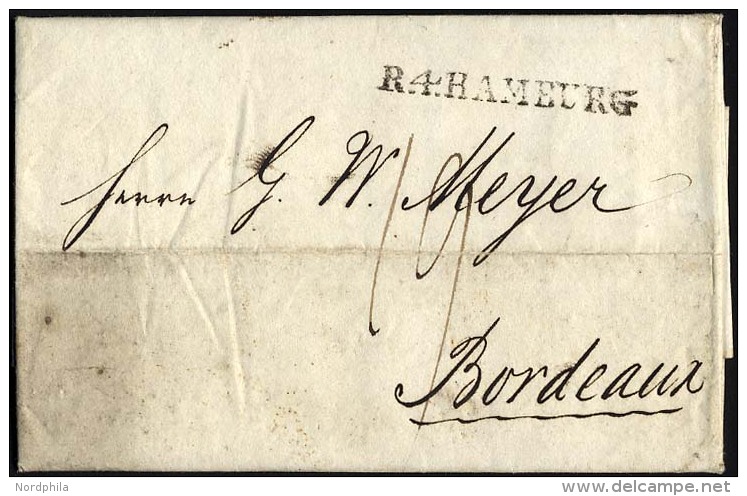 R.4.HAMBURG
Herrn G. W. Meyer
Bordeaux
Nordphila
delcampe.net